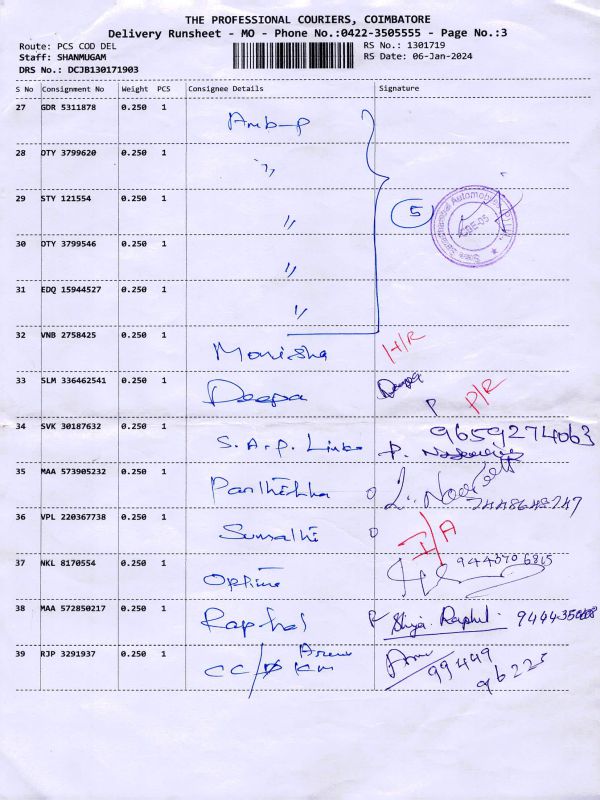 THE PROFESSIONAL COURIERS, COIMBATORE
Delivery Runsheet - MO - Phone No.:0422-3505555 - Page No.:3
Route: PCS COD DEL
RS No.: 1301719
Staff: SHANMUGAM
RS Date: 06-Jan-2024
DRS No.: DCJB130171903
S No Consignment No Weight PCS Consignee Details Signature
27 GDR 5311878 0.250 1
28 DTY 3799620 0.250 1 "
29 STY 121554 0.250 1 " 5
CBE-05
30 DTY 3799546 0.250 1 "
31 EDQ 15944527 0.250 1 "
32 VNB 2758425 0.250 1 Monisha H/R
33 SLM 336462541 0.250 1 Deepa Deepa P/R
34 SVK 30187632 0.250 1 S.A.P. Links P. 9659274063
35 MAA 573905232 0.250 1 7448648747
36 VPL 220367738 0.250 1 Sumathi I/A
37 NKL 8170554 0.250 1 Optime 9443706815
38 MAA 572850217 0.250 1 Raphel Raphel
39 RJP 3291937 0.250 1 99499
96225